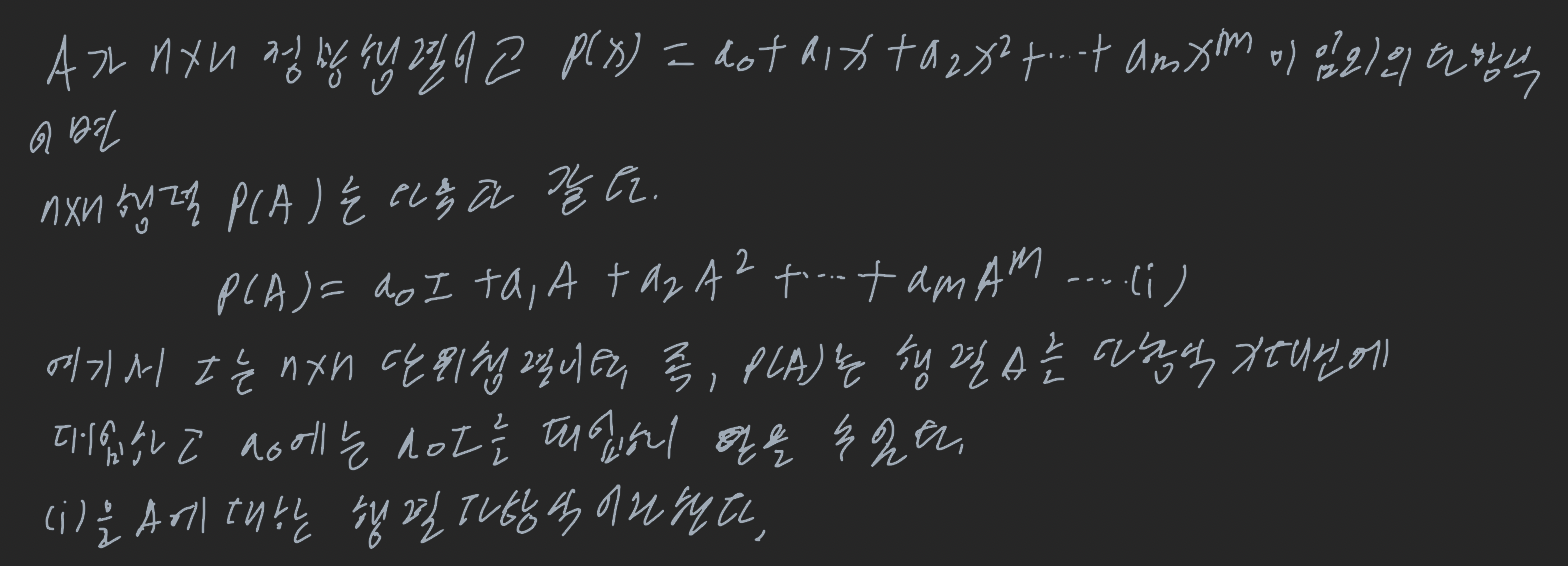 A가 n×n 정방행렬이고 P(x) = a₀ + a₁x + a₂x² + ⋯ + aₘxᵐ 이 임의의 다항식
이면
n×n행렬 P(A)는 다음과 같다.
P(A) = a₀I + a₁A + a₂A² + ⋯ + aₘAᵐ ⋯ (i)
여기서 I는 n×n 단위행렬이다. 즉, P(A)는 행렬 A를 다항식 x대신에
대입하고 a₀에는 a₀I를 대입해 얻을 수 있다.
(i)을 A에 대한 행렬 다항식이라 한다.